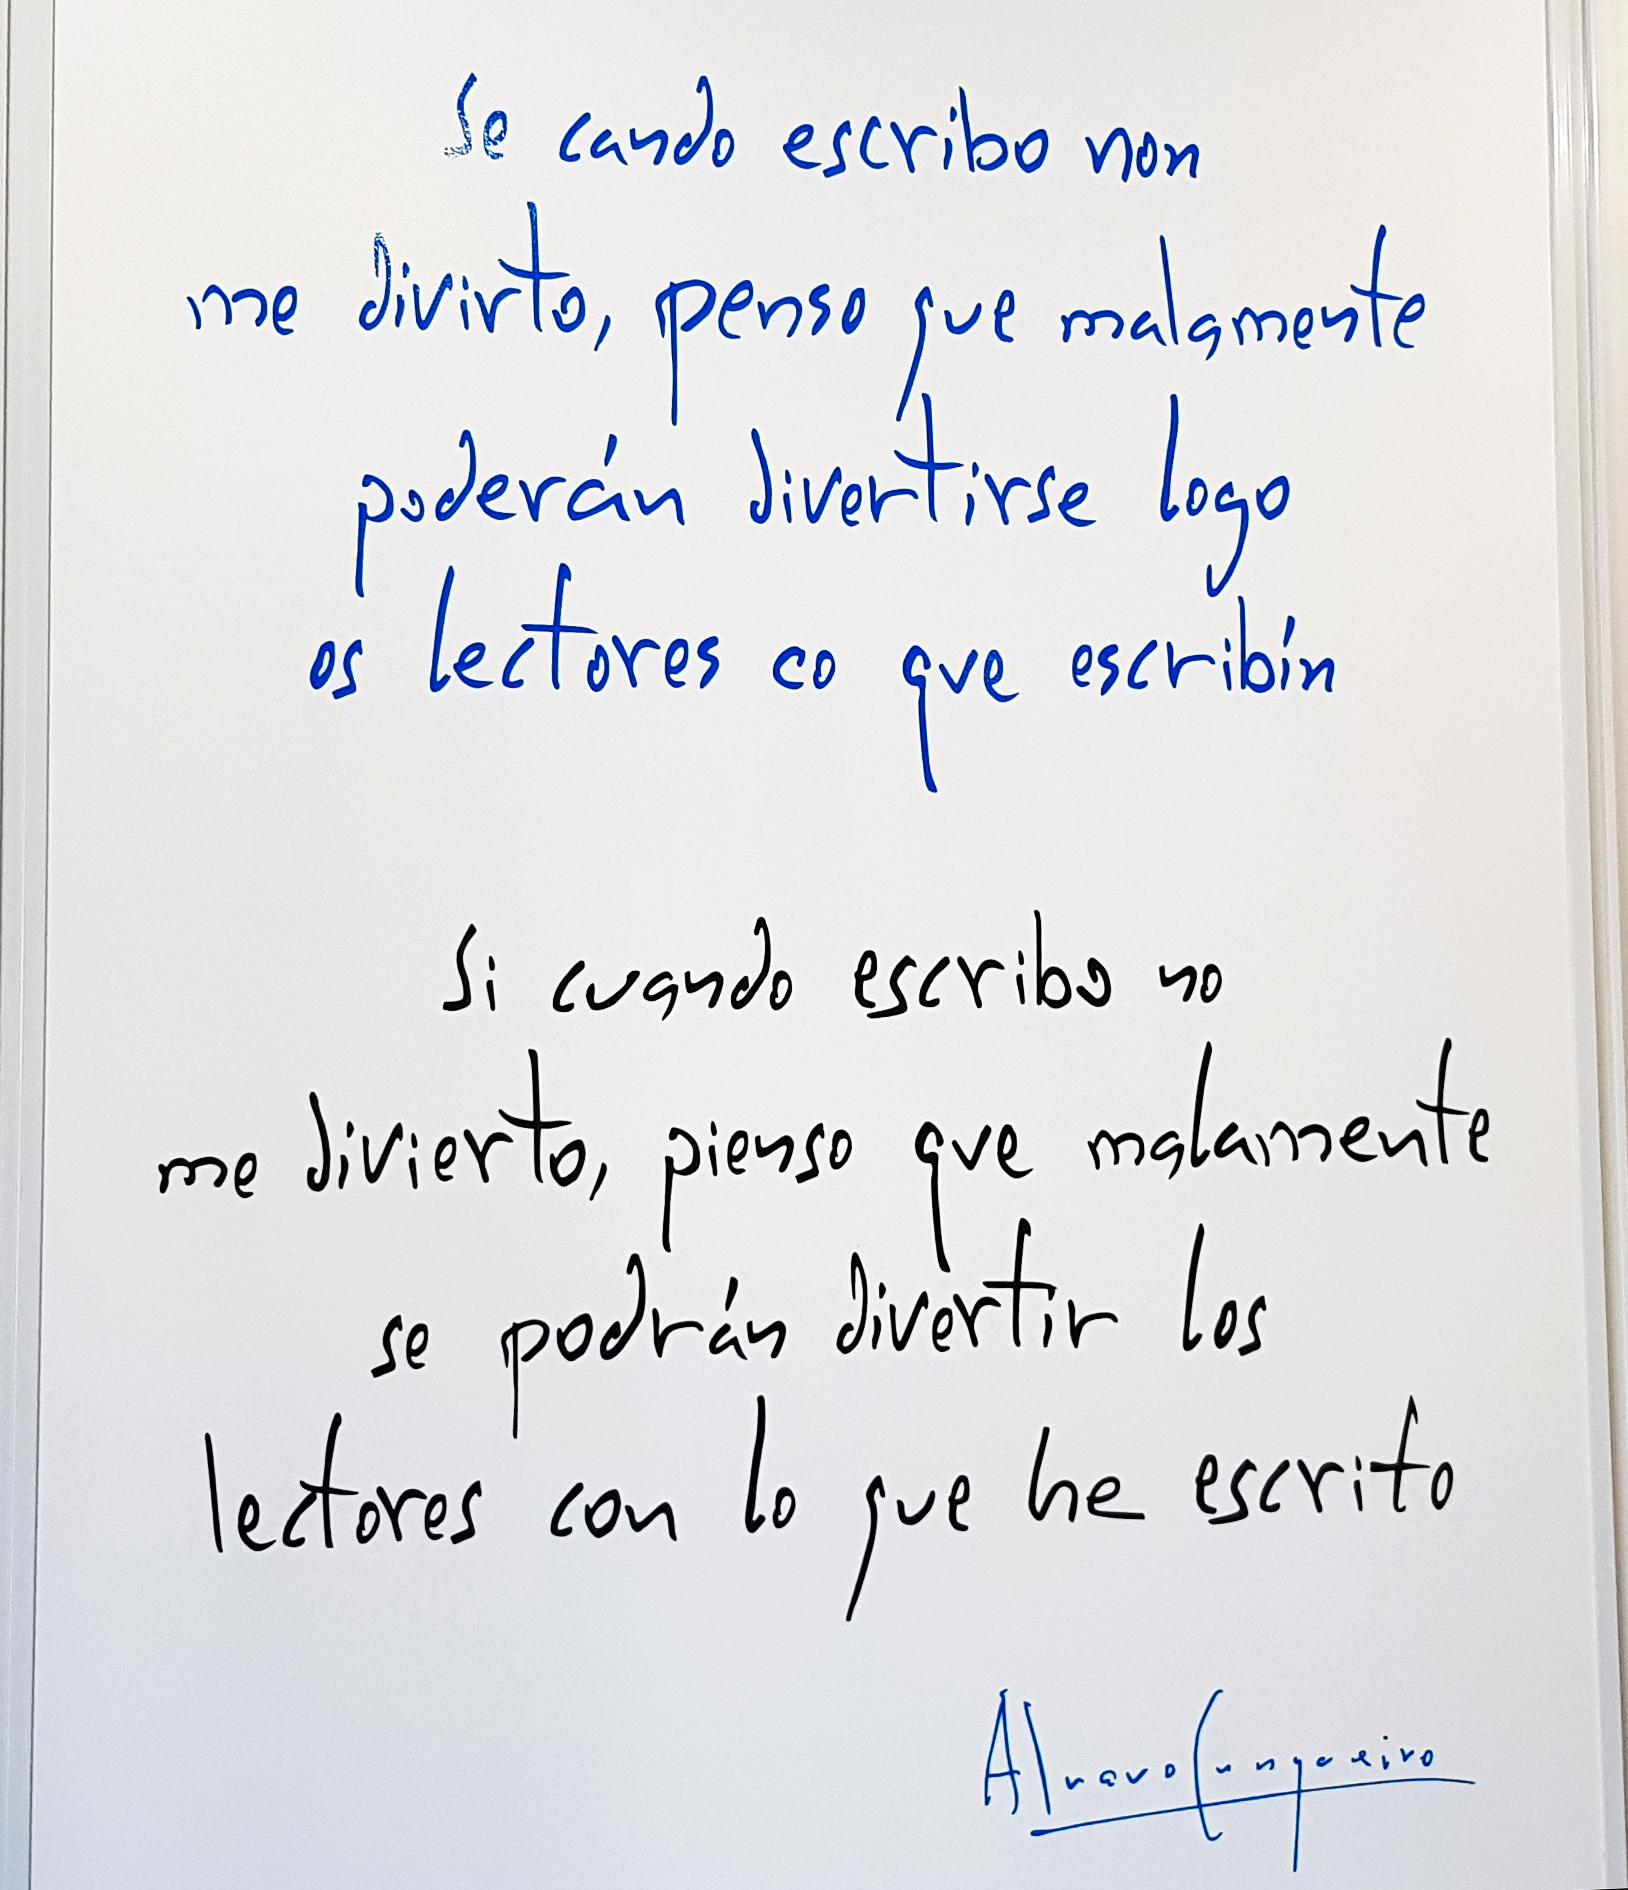 Se cando escribo non
me divirto, penso que malamente
poderán divertirse logo
os lectores co que escribín
Si cuando escribo no
me divierto, pienso que malamente
se podrán divertir los
lectores con lo que he escrito
Alvaro Cunqueiro